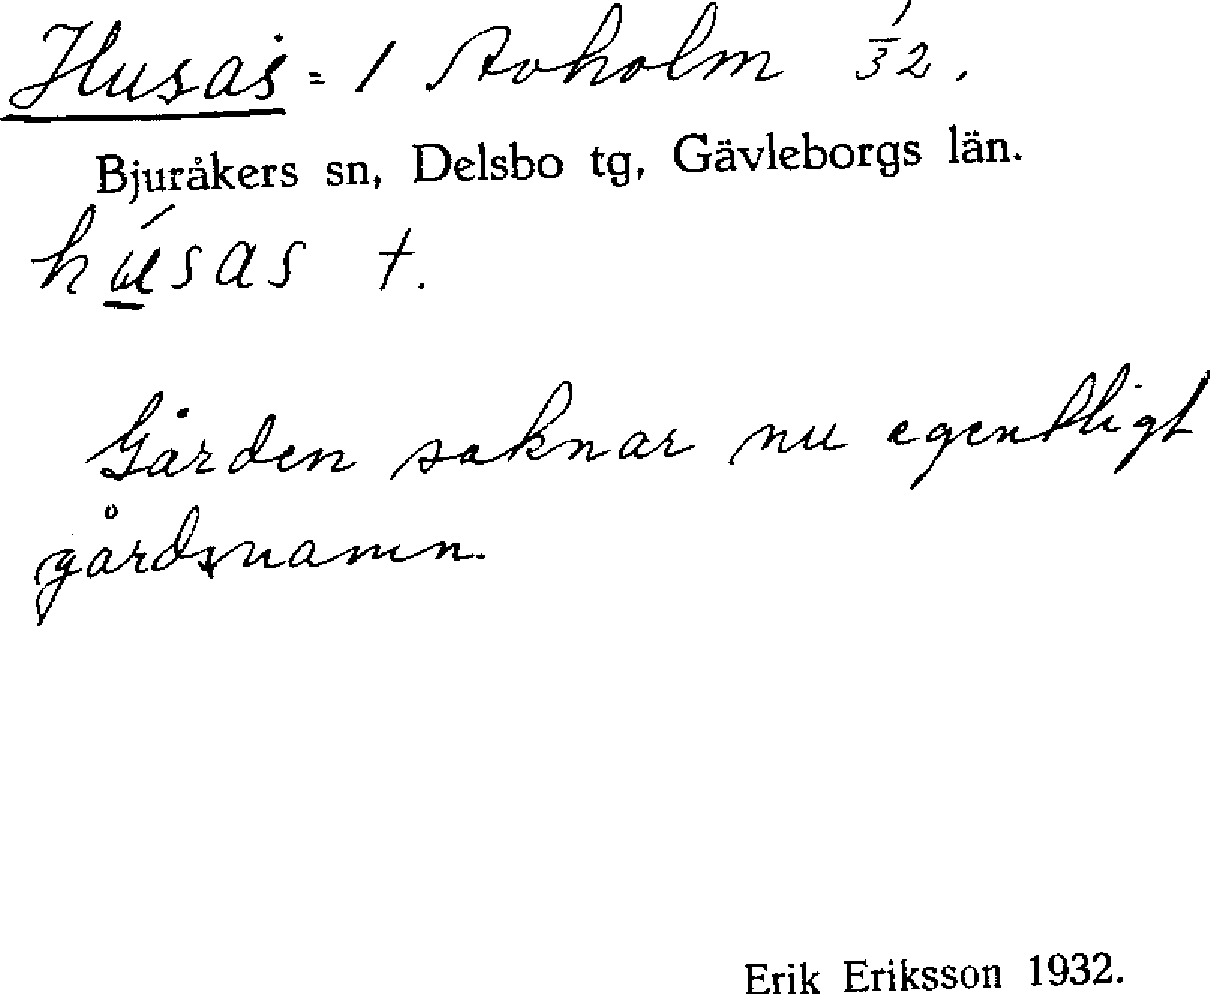 Husas = 1 Avholm 1/32.
Bjuråkers sn, Delsbo tg, Gävleborgs län.
húsas †.
Gården saknar nu egentligt
gårdsnamn.
Erik Eriksson 1932.